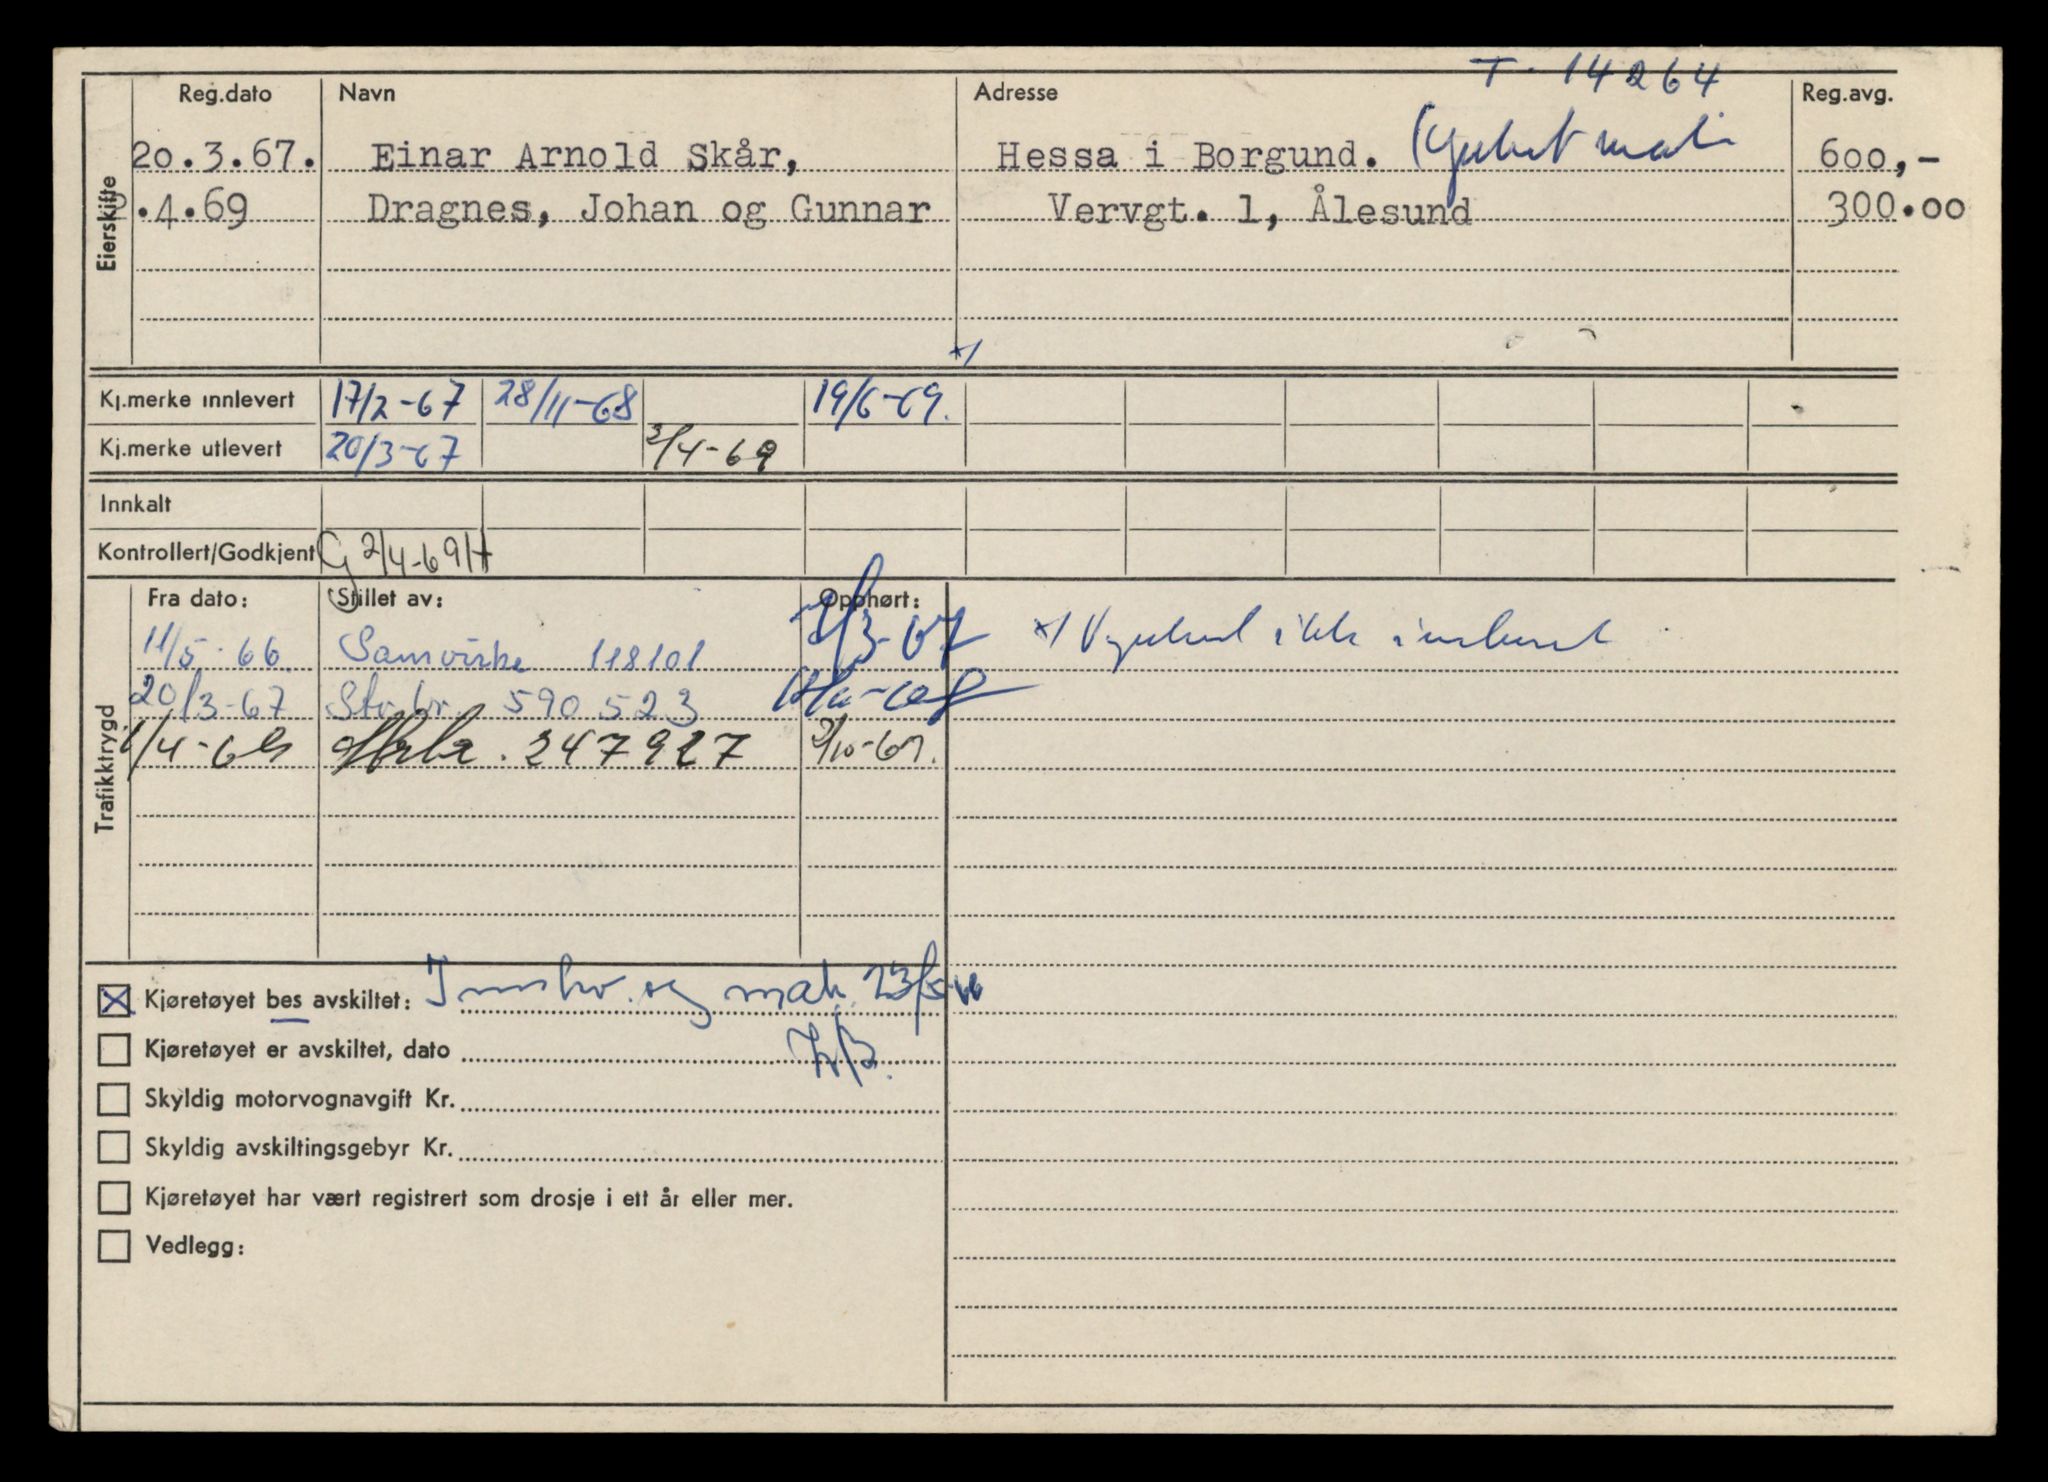 T-14264
Reg.dato Navn Adresse Reg.avg.
20.3.67. Einar Arnold Skår, Hessa i Borgund. 600,-
2.4.69 Dragnes, Johan og Gunnar Vervgt. 1, Ålesund 300.00
Eierskifte
Kj.merke innlevert 17/2-67 28/11-68 19/6-69.
Kj.merke utlevert 20/3-67 2/4-69
Innkalt
Kontrollert/Godkjent G 2/4-69/H
Fra dato: Stillet av: Opphørt:
11/5-66 Samvirke 118101 /3-67
20/3-67 Stbr. 590523
1/4-69 247927 /10-69.
Trafikktrygd
x/ V ikke innlevert
Kjøretøyet bes avskiltet: Innkr. og mak. 23/5-66
Kjøretøyet er avskiltet, dato
Skyldig motorvognavgift Kr.
Skyldig avskiltingsgebyr Kr.
Kjøretøyet har vært registrert som drosje i ett år eller mer.
Vedlegg: